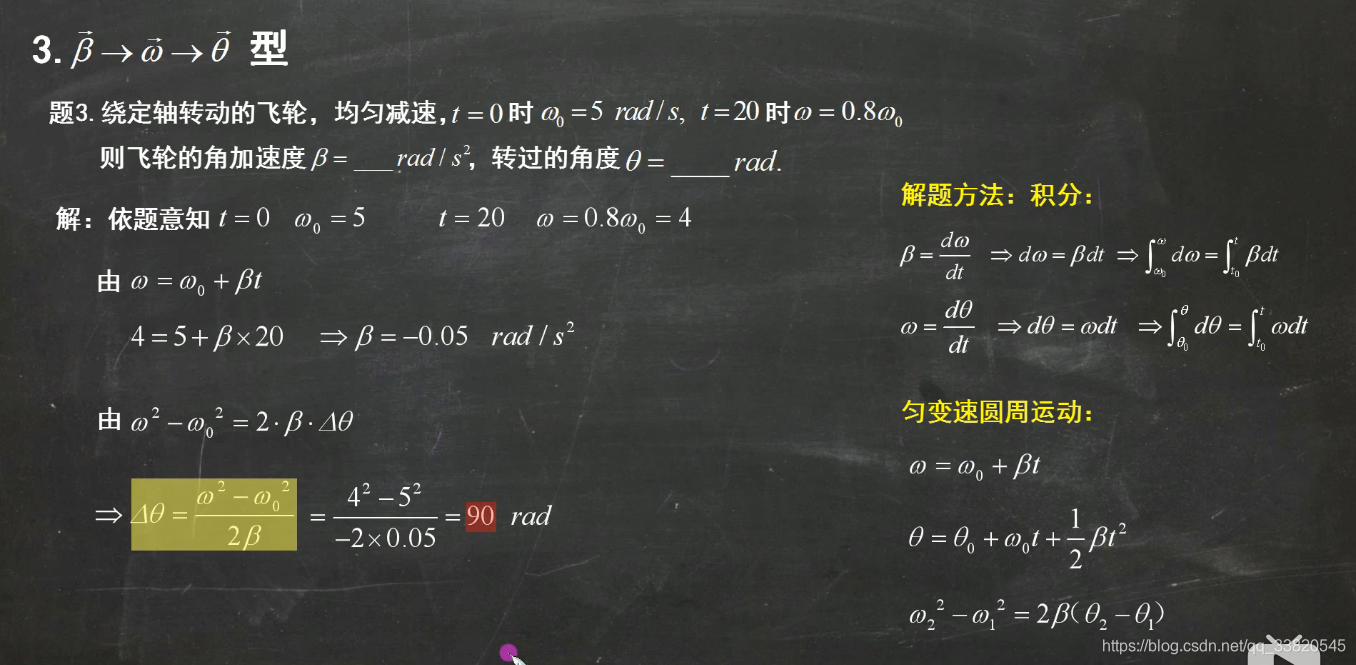 3. β⃗ → ω⃗ → θ⃗ 型
题3. 绕定轴转动的飞轮，均匀减速，t = 0 时 ω₀ = 5 rad / s, t = 20 时 ω = 0.8ω₀
则飞轮的角加速度 β = ___ rad / s²，转过的角度 θ = ____ rad.
解：依题意知 t = 0 ω₀ = 5 t = 20 ω = 0.8ω₀ = 4
由 ω = ω₀ + βt
4 = 5 + β × 20 ⇒ β = −0.05 rad / s²
由 ω² − ω₀² = 2 · β · Δθ
⇒ Δθ = (ω² − ω₀²) / 2β = (4² − 5²) / (−2 × 0.05) = 90 rad
解题方法：积分：
β = dω/dt ⇒ dω = βdt ⇒ ∫_{ω₀}^{ω} dω = ∫_{t₀}^{t} βdt
ω = dθ/dt ⇒ dθ = ωdt ⇒ ∫_{θ₀}^{θ} dθ = ∫_{t₀}^{t} ωdt
匀变速圆周运动：
ω = ω₀ + βt
θ = θ₀ + ω₀t + 1/2 βt²
ω₂² − ω₁² = 2β(θ₂ − θ₁)
https://blog.csdn.net/qq_33820545